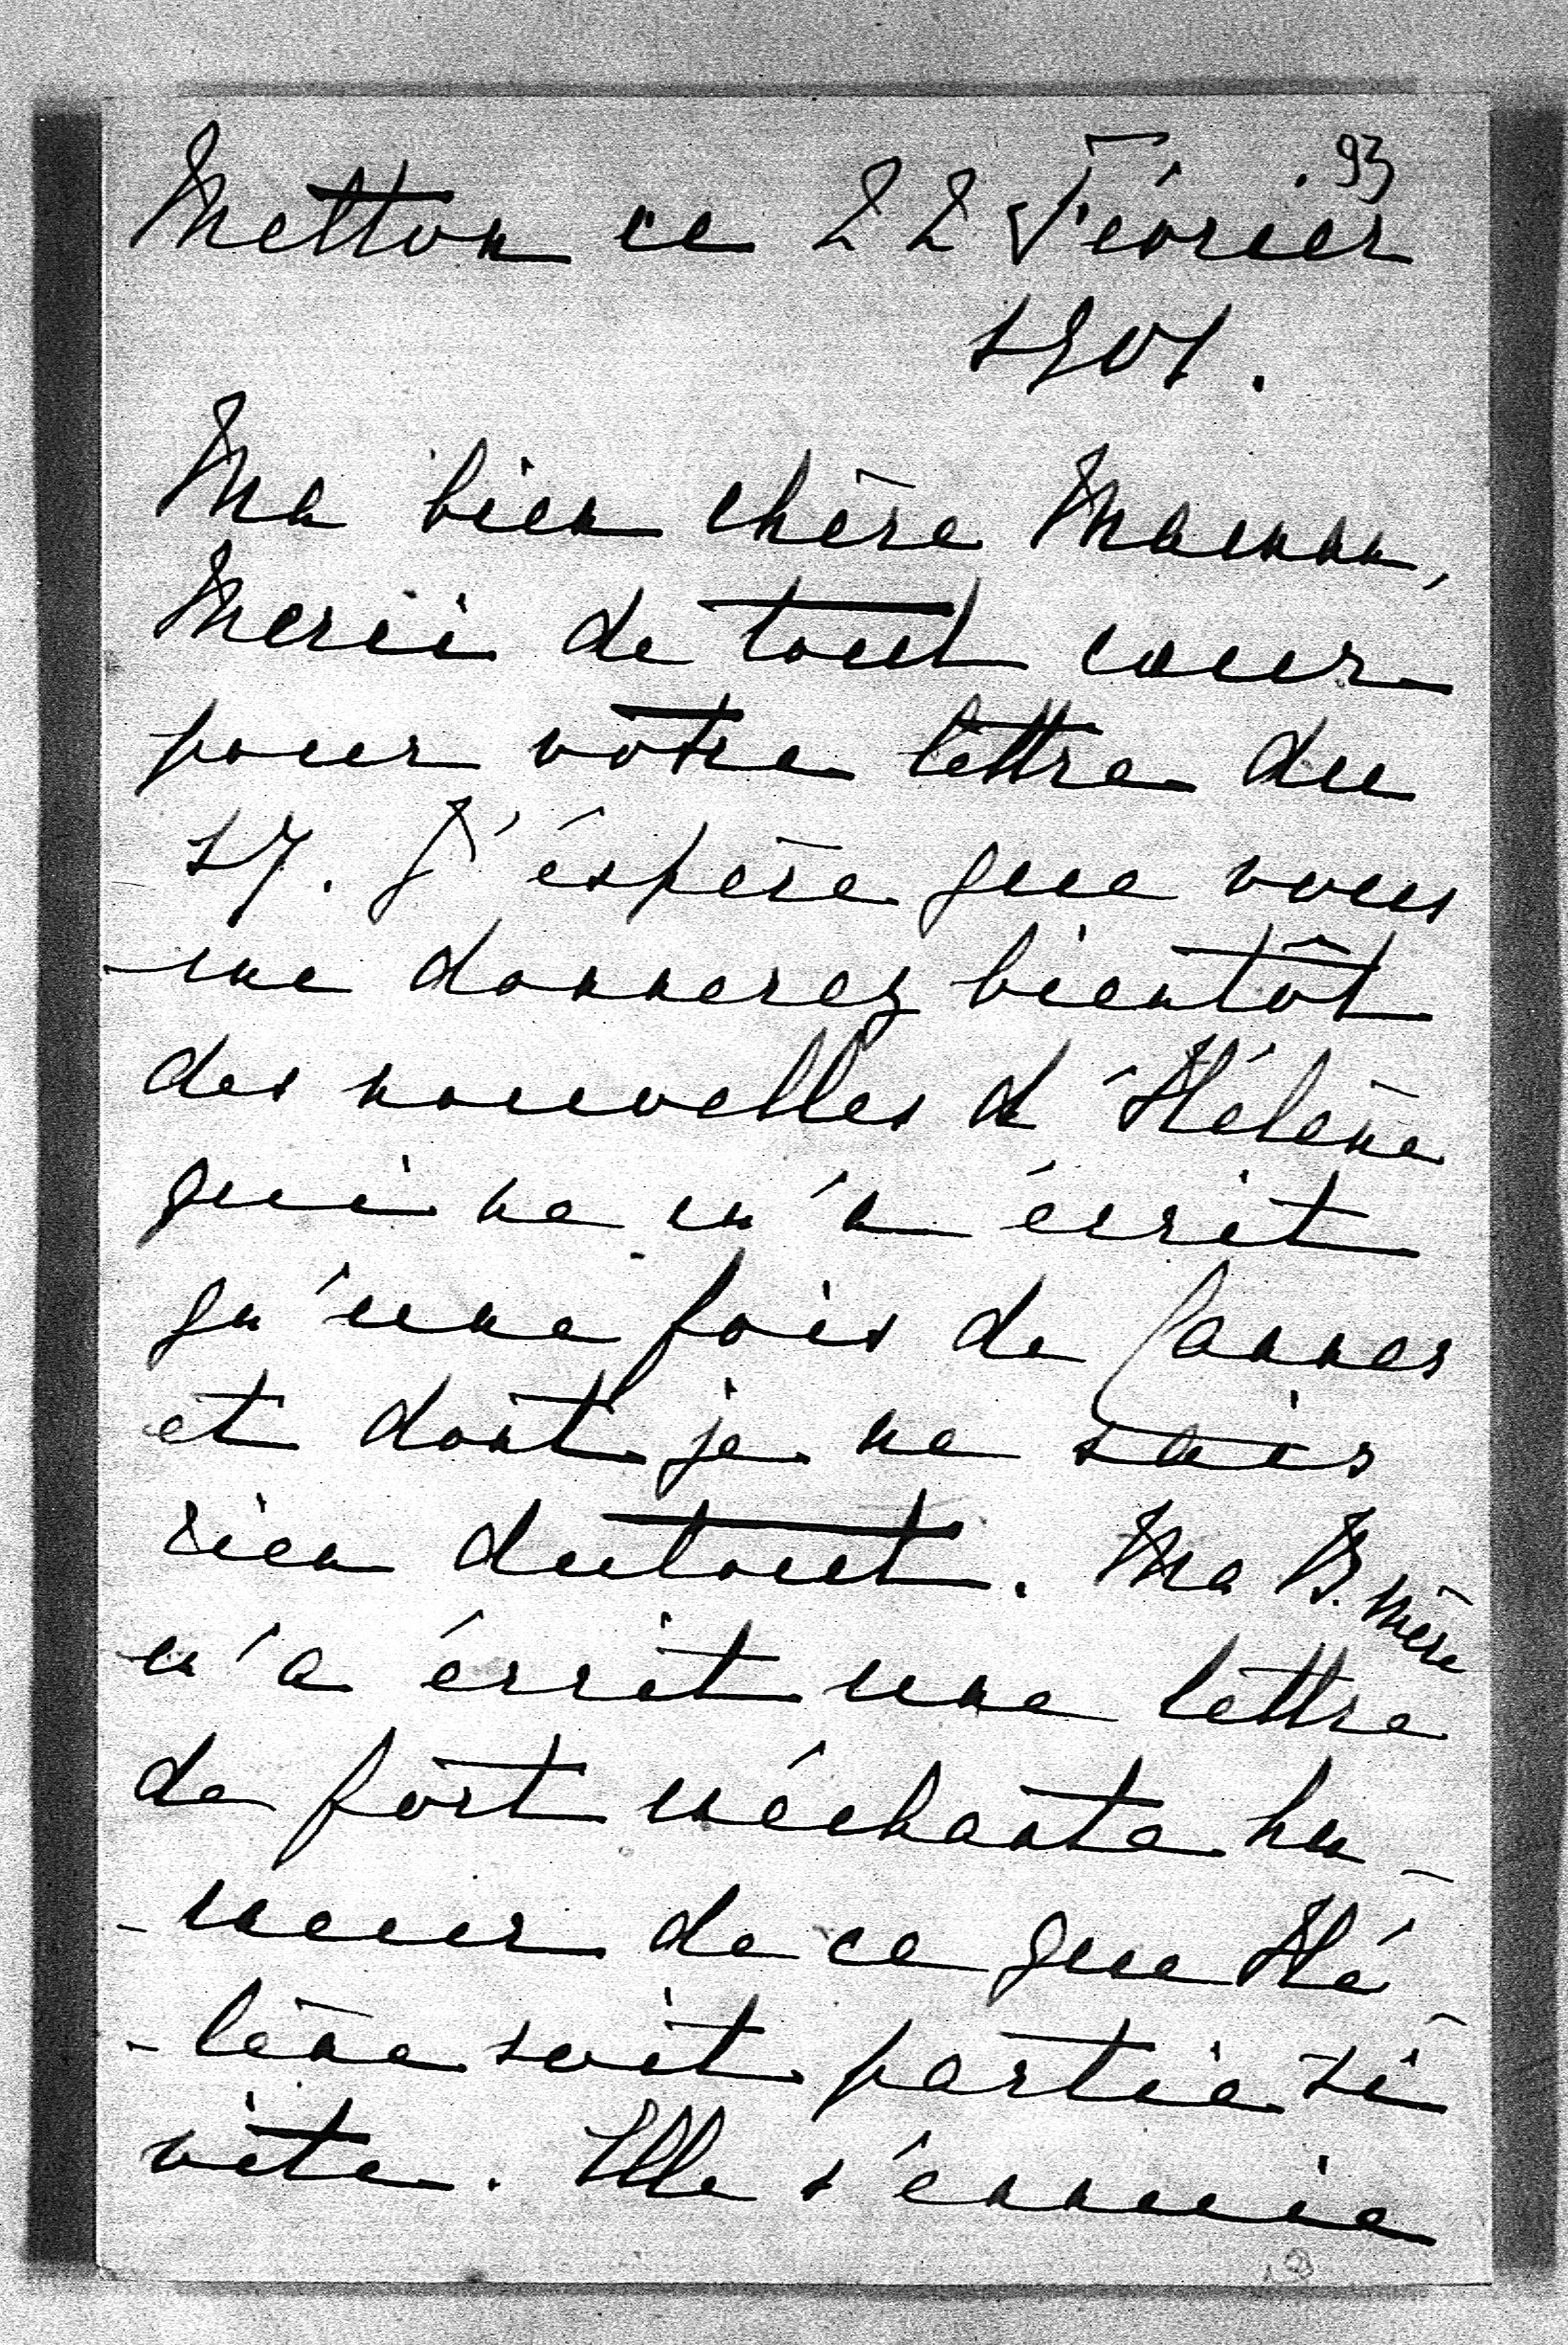 93
Metton ce 22 Février
1901.
Ma bien chère Maman,
Merci de tout coeur
pour vôtre lettre du
17. J'éspère que vous
me donnerez bientôt
des nouvelles d'Hélène
qui ne m'a écrit
qu'une fois de Cannes
et dont je ne sais
rien dutout. Ma B. mère
m'a écrit une lettre
de fort méchante hu-
-meur de ce que Hé-
-lène soit partie si
vite. Elle s'ennuie